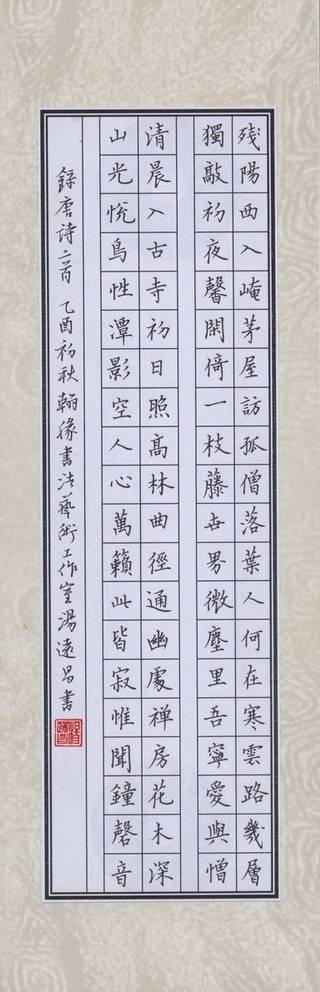 殘陽西入崦茅屋訪孤僧落葉人何在寒雲路幾層
獨敲初夜馨閑倚一枝藤世界微塵里吾寧愛與憎
清晨入古寺初日照高林曲徑通幽處禅房花木深
山光悅鳥性潭影空人心萬籟此皆寂惟聞鐘磬音
錄唐詩二首 乙酉初秋翰緣書法藝術工作室湯遠昌書